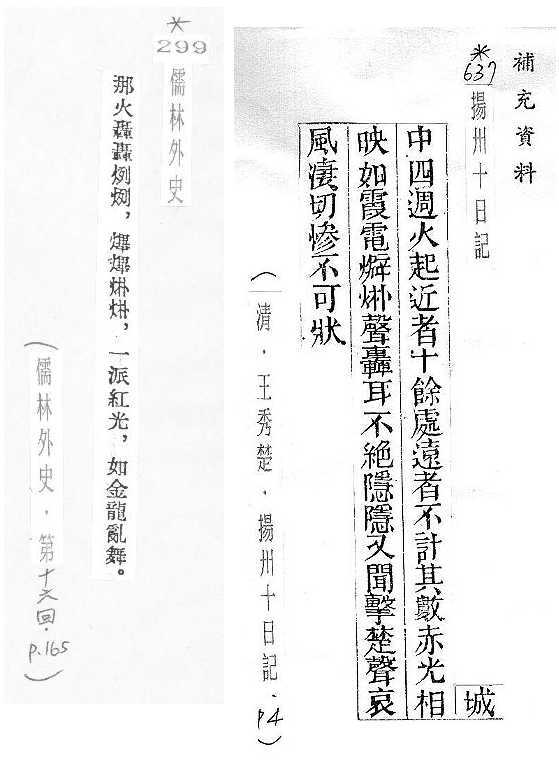 補充資料
*637
揚州十日記
城
中四週火起近者十餘處遠者不計其數赤光相
映如霞電烞聲轟耳不絕隱隱又聞擊楚聲哀
風淒切慘不可狀
(清.王秀楚.揚州十日記.p4)
*299
儒林外史
那火轟轟烮烮,熚熚烞烞,一派紅光,如金龍亂舞。
(儒林外史.第十六回.p.165)